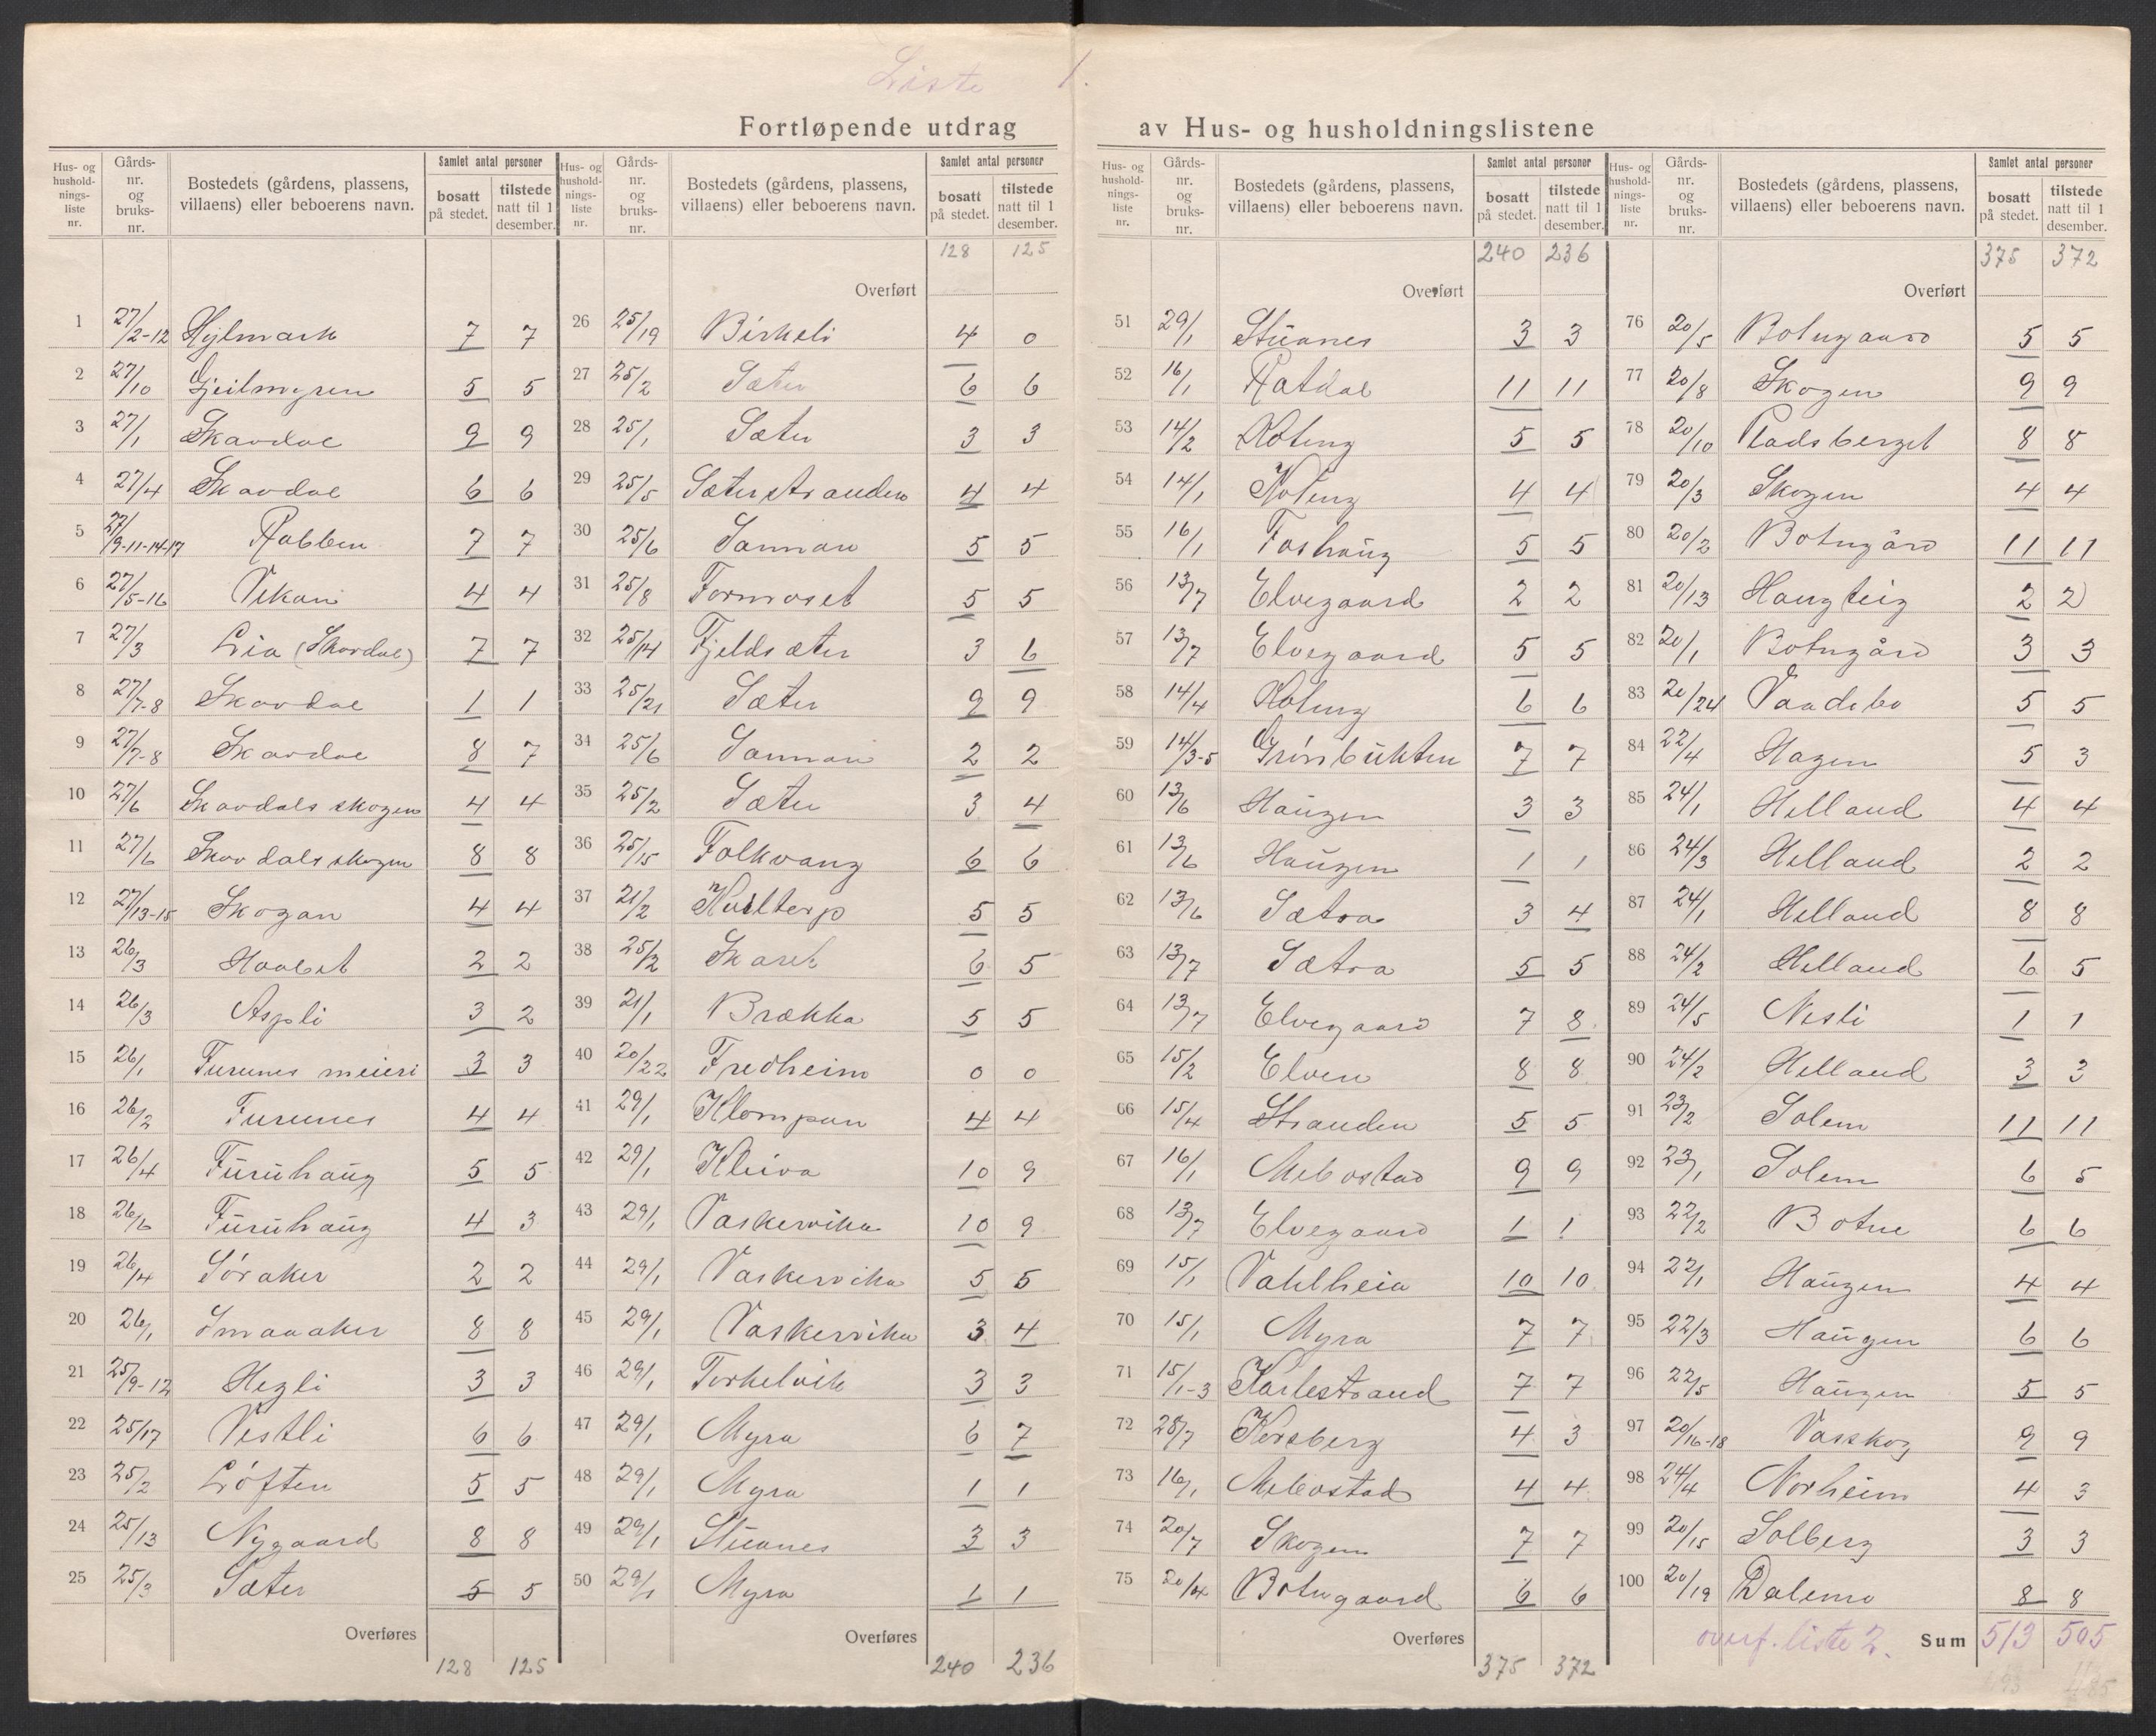 Liste 1.
Fortløpende utdrag av Hus- og husholdningslistene
Hus- og husholdningsliste nr. | Gårds-nr. og bruks-nr. | Bostedets (gårdens, plassens, villaens) eller beboerens navn. | Samlet antal personer | bosatt på stedet. | tilstede natt til 1 desember.
1 27/2-12 Hylmark 7 7
2 27/10 Gjeilmyren 5 5
3 27/1 Skavdal 9 9
4 27/4 Skavdal 6 6
5 27/9-11-14-17 Rabben 7 7
6 27/5-16 Vikan 4 4
7 27/3 Lia (Skavdal) 7 7
8 27/7-8 Skavdal 1 1
9 27/7-8 Skavdal 8 7
10 27/6 Skavdals skogen 4 4
11 27/6 Skavdals skogen 8 8
12 27/13-15 Skogan 4 4
13 26/3 Haabet 2 2
14 26/3 Aspli 3 2
15 26/1 Furunes meieri 3 3
16 26/2 Furunes 4 4
17 26/4 Furuhaug 5 5
18 26/6 Furuhaug 4 3
19 26/4 Søraker 2 2
20 26/1 Smaaaker 8 8
21 25/9-12 Hegli 3 3
22 25/17 Vestli 6 6
23 25/2 Løften 5 5
24 25/13 Nygaard 8 8
25 25/3 Sæter 5 5
Overføres 128 125
Hus- og husholdningsliste nr. | Gårds-nr. og bruks-nr. | Bostedets (gårdens, plassens, villaens) eller beboerens navn. | Samlet antal personer | bosatt på stedet. | tilstede natt til 1 desember.
Overført 128 125
26 25/19 Birkeli 4 0
27 25/2 Sæter 6 6
28 25/1 Sæter 3 3
29 25/5 Sæterstranden 4 4
30 25/6 Sannan 5 5
31 25/8 Formoset 5 5
32 25/14 Fjeldsæter 3 6
33 25/21 Sæter 9 9
34 25/6 Sannan 2 2
35 25/2 Sæter 3 4
36 25/15 Folkvang 6 6
37 21/2 Kvilterp 5 5
38 25/2 Skaret 6 5
39 21/1 Brækka 5 5
40 20/22 Fredheim 0 0
41 29/1 Klompan 4 4
42 29/1 Kleiva 10 9
43 29/1 Vaskervika 10 9
44 29/1 Vaskervika 5 5
45 29/1 Vaskervika 3 4
46 29/1 Torkelvik 3 3
47 29/1 Myra 6 7
48 29/1 Myra 1 1
49 29/1 Stuanes 3 3
50 29/1 Myra 1 1
Overføres 240 236
Hus- og husholdningsliste nr. | Gårds-nr. og bruks-nr. | Bostedets (gårdens, plassens, villaens) eller beboerens navn. | Samlet antal personer | bosatt på stedet. | tilstede natt til 1 desember.
Overført 240 236
51 29/1 Stuanes 3 3
52 16/1 Ratdal 11 11
53 14/2 Koteng 5 5
54 14/1 Koteng 4 4
55 16/1 Foshaug 5 5
56 13/7 Elvegaard 2 2
57 13/7 Elvegaard 5 5
58 14/4 Koteng 6 6
59 14/3-5 Grønbukten 7 7
60 13/6 Haugen 3 3
61 13/6 Haugen 1 1
62 13/6 Sætra 3 4
63 13/7 Sætra 5 5
64 13/7 Elvegaard 7 8
65 15/2 Elven 8 8
66 15/4 Stranden 5 5
67 16/1 Mebostad 9 9
68 13/7 Elvegaard 1 1
69 15/1 Vahlheia 10 10
70 15/1 Myra 7 7
71 15/1-3 Karlestrand 7 7
72 28/7 Korsberg 4 3
73 16/1 Mebostad 4 4
74 20/7 Skogen 7 7
75 20/4 Botngaard 6 6
Overføres 375 372
Hus- og husholdningsliste nr. | Gårds-nr. og bruks-nr. | Bostedets (gårdens, plassens, villaens) eller beboerens navn. | Samlet antal personer | bosatt på stedet. | tilstede natt til 1 desember.
Overført 375 372
76 20/5 Botngaard 5 5
77 20/8 Skogen 9 9
78 20/10 Pladsberget 8 8
79 20/3 Skogen 4 4
80 20/2 Botngård 11 11
81 20/13 Haugteig 2 2
82 20/1 Botngård 3 3
83 20/24 Vandebo 5 5
84 22/4 Hagen 5 3
85 24/1 Helland 4 4
86 24/3 Helland 2 2
87 24/1 Helland 8 8
88 24/2 Helland 6 5
89 24/5 Nesli 1 1
90 24/2 Helland 3 3
91 23/2 Solem 11 11
92 23/1 Solem 6 5
93 22/2 Botne 6 6
94 22/1 Haugen 4 4
95 22/3 Haugen 6 6
96 22/5 Haugen 5 5
97 20/16-18 Vasskog 9 9
98 24/4 Norheim 4 3
99 20/15 Solberg 3 3
100 20/19 Dalemo 8 8
overf. liste 2. Sum 513 505